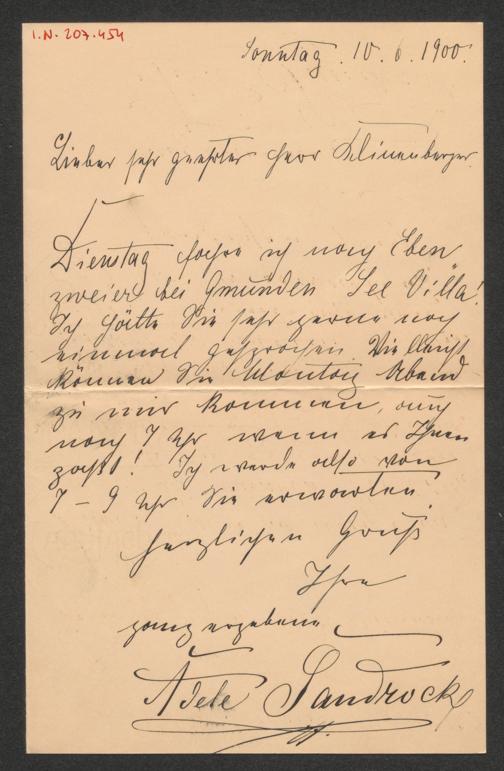 I.N. 207.454
Sonntag. 10. 6. 1900.
Lieber sehr geehrter Herr Klinenberger
Dienstag fahre ich nach Eben
zweier bei Gmunden See Villa!
Ich hätte Sie sehr gerne noch
einmal gesprochen Vielleicht
können Sie Montag Abend
zu mir kommen, auch
nach 7 Uhr wenn es Ihnen
paßt! Ich werde also von
7 – 9 Uhr Sie erwarten.
herzlichen Gruß
Ihre
ganz ergebene
Adele Sandrock